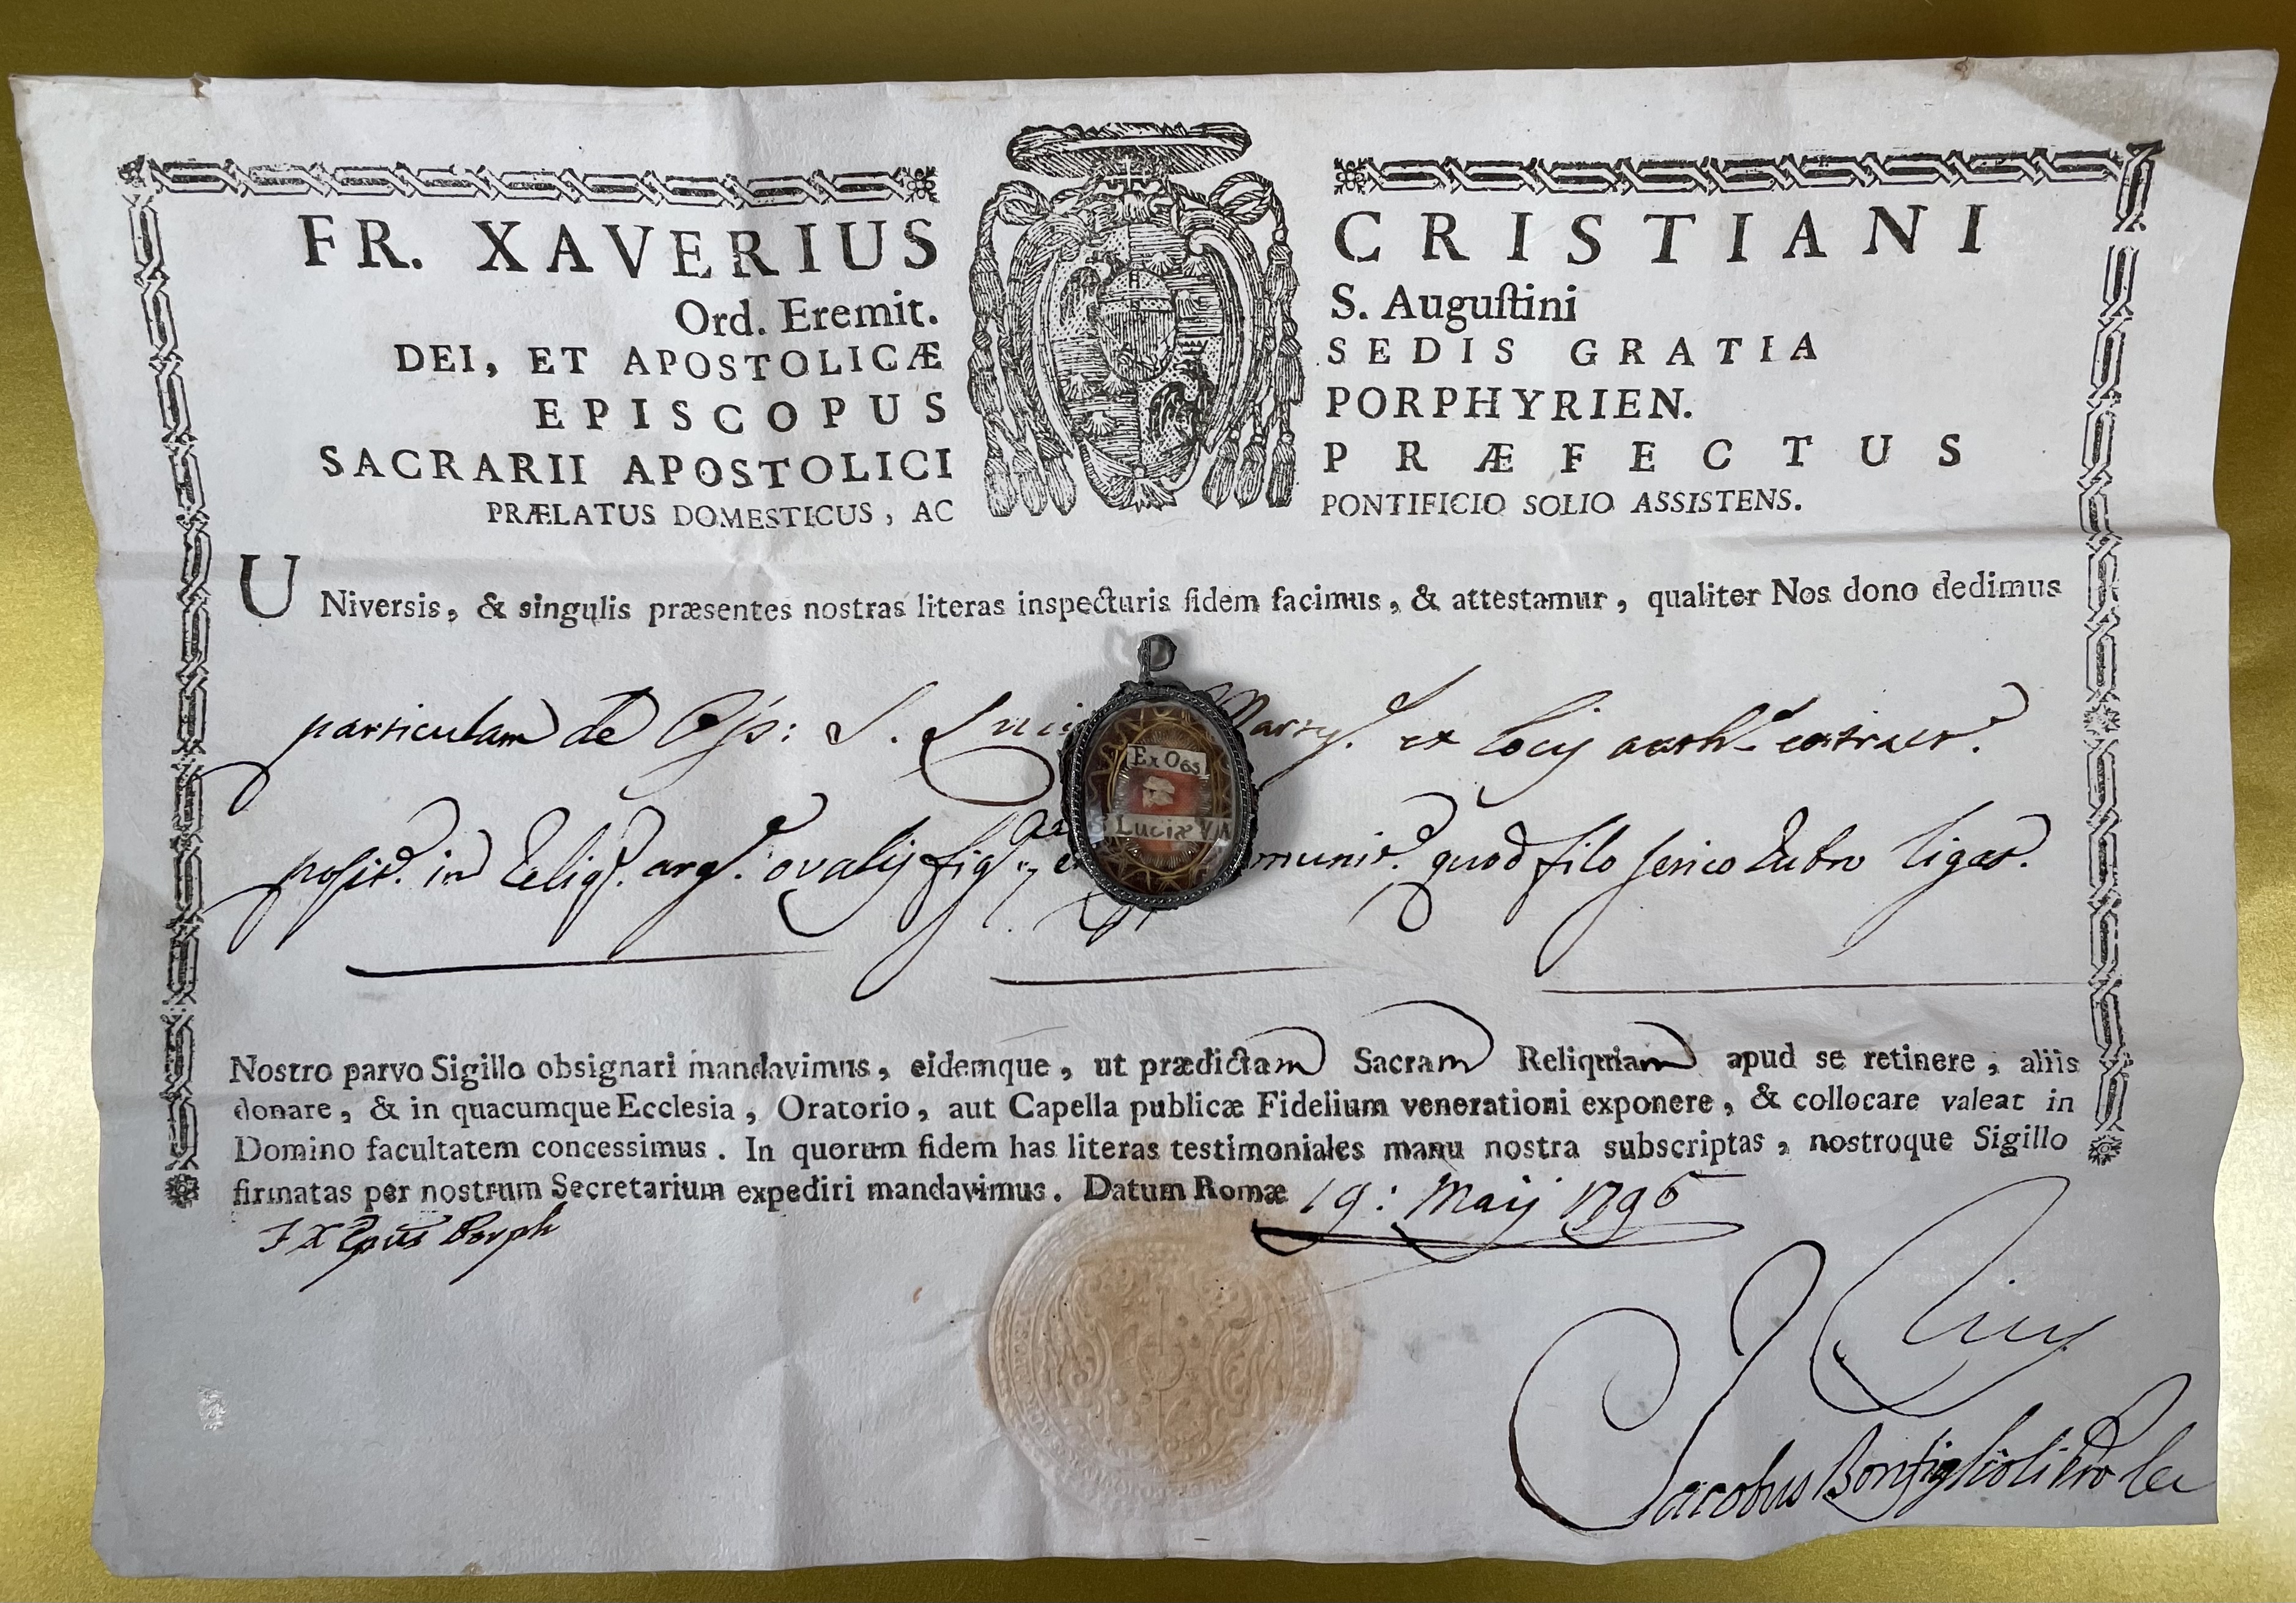 FR. XAVERIUS CRISTIANI
Ord. Eremit. S. Auguſtini
DEI, ET APOSTOLICÆ SEDIS GRATIA
EPISCOPUS PORPHYRIEN.
SACRARII APOSTOLICI PRÆFECTUS
PRÆLATUS DOMESTICUS, AC PONTIFICIO SOLIO ASSISTENS.
UNiversis, & singulis præsentes nostras literas inspecturis fidem facimus, & attestamur, qualiter Nos dono dedimus
particulam de S. Marty. ex locis auth. extract.
Ex Oss
Luciæ VM
posit. in Reliq. arg. ovalis fig. munit. quod filo serico rubro ligat.
Nostro parvo Sigillo obsignari mandavimus, eidemque, ut prædictam Sacram Reliquiam apud se retinere, aliis
donare, & in quacumque Ecclesia, Oratorio, aut Capella publicæ Fidelium venerationi exponere, & collocare valeat in
Domino facultatem concessimus. In quorum fidem has literas testimoniales manu nostra subscriptas, nostroque Sigillo
firmatas per nostrum Secretarium expediri mandavimus. Datum Romæ 19: Maij 1796
F X Epus Porph
Jacobus Bonfiglioli